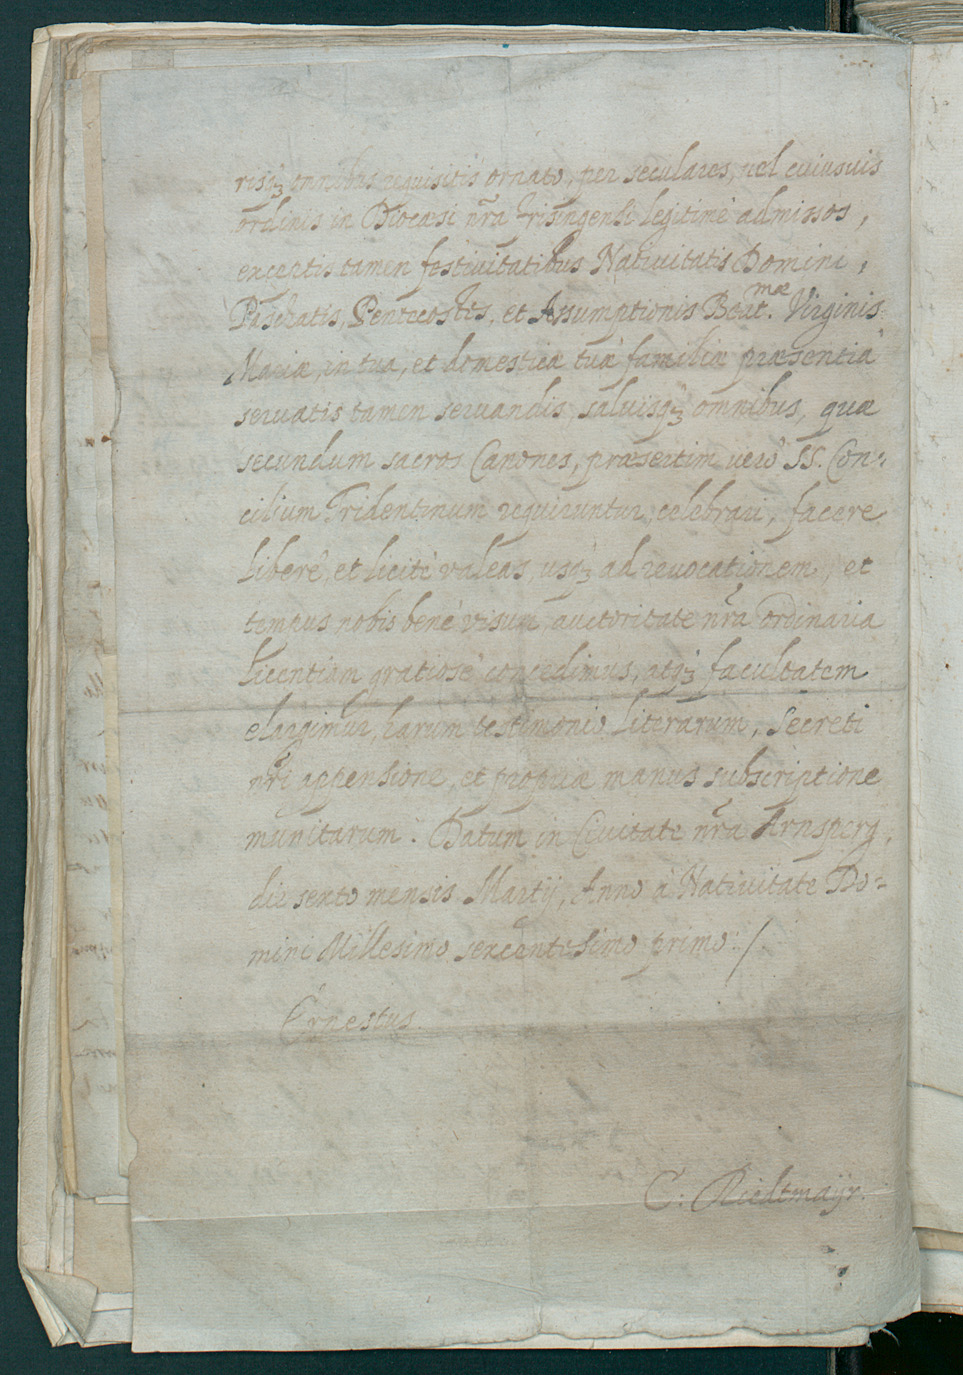 risqꝫ omnibus requisitis ornato, per seculares, vel cuiusuis
ordinis in Diocæsi nr̃a Frisingensi legitimè admissos,
exceptis tamen festiuitatibus Natiuitatis Domini,
Paschatis, Pentecostes, et Assumptionis Beat.mæ Virginis
Mariæ, in tua, et domesticæ tuæ familiæ præsentia
seruatis tamen seruandis, saluisqꝫ omnibus, quæ
secundum sacros Canones, præsertim verò SS. Con-
cilium Tridentinum requiruntur, celebrari, facere
liberè, et licitè valeas, usqꝫ ad reuocationem, et
tempus nobis benè visum, auctoritate nr̃a ordinaria
licentiam gratiosè concedimus, atqꝫ facultatem
elargimur, harum testimonio literarum, Secreti
nr̃i appensione, et propriæ manus subscriptione
munitarum. Datum in Ciuitate nr̃a Arnsperg,
die sexto mensis Martij, Anno à Natiuitate Do-
mini Millesimo sexcentesimo primo ./.
Ernestus.
C: Riedtmayr.